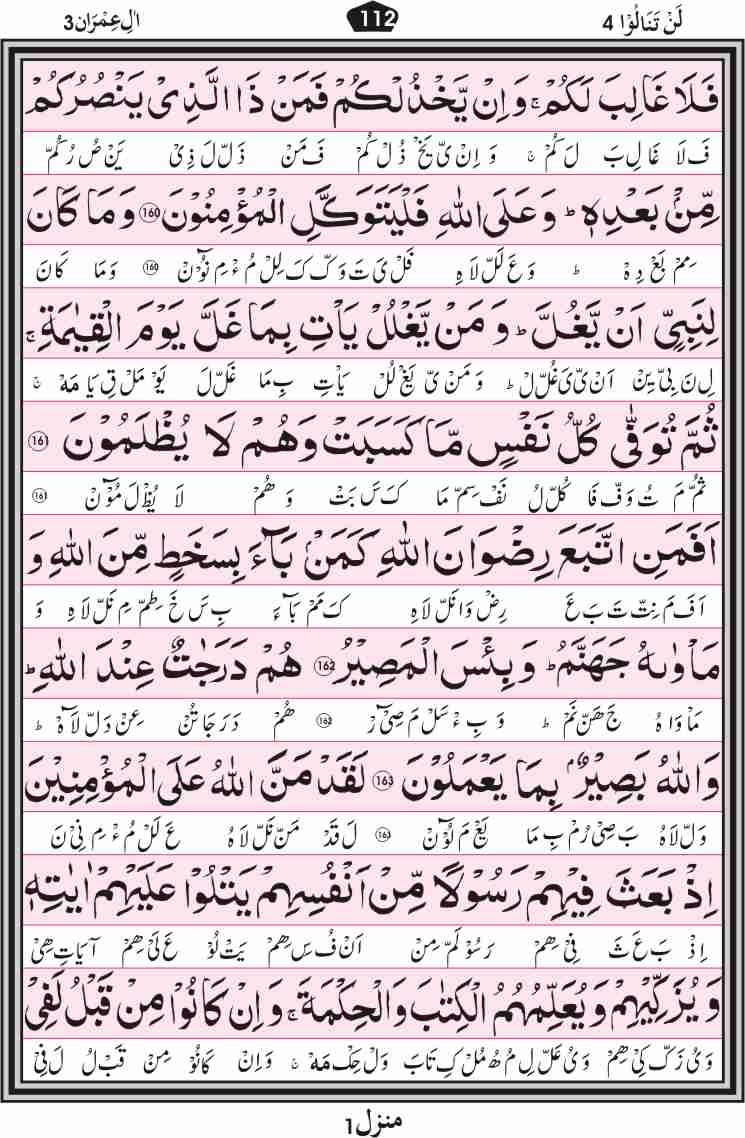 لَنْ تَنَالُوْا 4 112 اٰلِ عِمْرَان 3
فَلَا غَالِبَ لَكُمْ ۚ وَاِنْ يَّخْذُلْكُمْ فَمَنْ ذَا الَّذِيْ يَنْصُرُكُمْ
فَ لَا غَا لِ بَ لَ كُمْ ۚ وَ اِنْ يَّ يَخْ ذُ لْ كُمْ فَ مَنْ ذَلْ لَ ذِيْ يَنْ صُ رُ كُمْ
مِّنْۢ بَعْدِهٖ ؕ وَعَلَى اللّٰهِ فَلْيَتَوَكَّلِ الْمُؤْمِنُوْنَ 160 وَمَا كَانَ
مِمْ بَعْ دِهْ ؕ وَ عَ لَلْ لَا هِ فَلْ يَ تَ وَكْ كَ لِلْ مُ ءْ مِ نُوْٓنْ 160 وَمَا كَانَ
لِنَبِيٍّ اَنْ يَّغُلَّ ؕ وَمَنْ يَّغْلُلْ يَاْتِ بِمَا غَلَّ يَوْمَ الْقِيٰمَةِ ۚ
لِ نَ بِيْ يِنْ اَنْ يَّ يَ غُلْ لْ ؕ وَ مَنْ يَّ يَغْ لُلْ يَاْتِ بِ مَا غَلْ لَ يَوْ مَلْ قِ يَا مَهْ ۚ
ثُمَّ تُوَفّٰى كُلُّ نَفْسٍ مَّا كَسَبَتْ وَهُمْ لَا يُظْلَمُوْنَ 161
ثُمْ مَ تُ وَفْ فَا كُلْ لُ نَفْ سِمْ مَا كَ سَ بَتْ وَ هُمْ لَا يُظْ لَ مُوْٓنْ 161
اَفَمَنِ اتَّبَعَ رِضْوَانَ اللّٰهِ كَمَنْۢ بَآءَ بِسَخَطٍ مِّنَ اللّٰهِ وَ
اَ فَ مَ نِتْ تَ بَ عَ رِضْ وَا نَلْ لَا هِ كَ مَمْ بَآءَ بِ سَ خَ طِمْ مِ نَلْ لَا هِ وَ
مَاْوٰىهُ جَهَنَّمُ ؕ وَبِئْسَ الْمَصِيْرُ 162 هُمْ دَرَجٰتٌ عِنْدَ اللّٰهِ ؕ
مَاْ وَا هُ جَ هَنْ نَمْ ؕ وَ بِ ءْ سَلْ مَ صِيْٓرْ 162 هُمْ دَ رَ جَا تُنْ عِنْ دَلْ لَاٰهْ ؕ
وَاللّٰهُ بَصِيْرٌۢ بِمَا يَعْمَلُوْنَ 163 لَقَدْ مَنَّ اللّٰهُ عَلَى الْمُؤْمِنِيْنَ
وَلْ لَا هُ بَ صِيْ رُمْ بِ مَا يَعْ مَ لُوْٓنْ 163 لَ قَدْ مَنْ نَلْ لَا هُ عَ لَلْ مُ ءْ مِ نِيْ نَ
اِذْ بَعَثَ فِيْهِمْ رَسُوْلًا مِّنْ اَنْفُسِهِمْ يَتْلُوْا عَلَيْهِمْ اٰيٰتِهٖ
اِذْ بَ عَ ثَ فِيْ هِمْ رَ سُوْ لَمْ مِنْ اَنْ فُ سِ هِمْ يَتْ لُوْ عَ لَيْ هِمْ آ يَا تِ هِيْ
وَيُزَكِّيْهِمْ وَيُعَلِّمُهُمُ الْكِتٰبَ وَالْحِكْمَةَ ۚ وَاِنْ كَانُوْا مِنْ قَبْلُ لَفِيْ
وَ يُ زَكْ كِيْ هِمْ وَ يُ عَلْ لِ مُ هُ مُلْ كِ تَا بَ وَلْ حِكْ مَهْ ۚ وَ اِنْ كَا نُوْ مِنْ قَبْ لُ لَ فِيْ
منزل 1